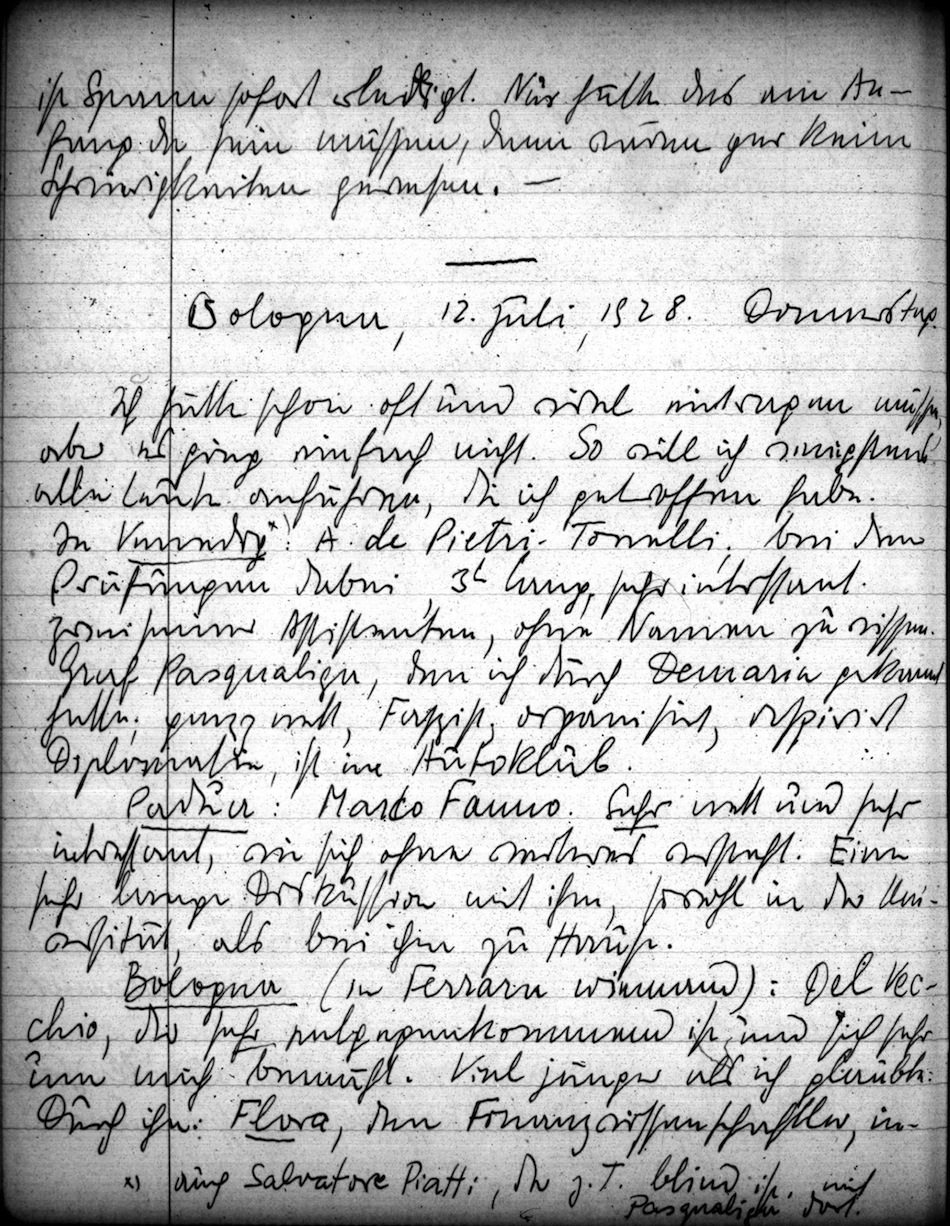 ist Spann sofort erledigt. Nur hätte das am An-
fang der sein müssen, dann wären gar keine
Schwierigkeiten gewesen. —
Bologna, 12. Juli, 1928. Donnerstag.
Ich hätte schon oft und viel eintragen müssen,
aber es ging einfach nicht. So will ich wenigstens
alle Leute anführen, die ich getroffen habe.
In Venedig x): A. de Pietri-Tonelli, bei den
Prüfungen dabei, 3h lang, sehr interessant.
Zwei seiner Assistenten, ohne Namen zu wissen.
Graf Pasqualigo, den ich durch Demaria gekannt
hatte; ganz nett, Faszist, organisiert,
Diplomatie, ist im Autoklub.
Padua: Marco Fanno. Sehr nett und sehr
interessant, wie sich ohne weiteres versteht. Eine
sehr lange Diskussion mit ihm, sowohl in der Uni-
versität, als bei ihm zu Hause.
Bologna (in Ferrara niemand): Del Vec-
chio, der sehr entgegenkommend ist und sich sehr
um mich bemüht. Viel jünger als ich glaubte.
Durch ihn: Flora, den Finanzwissenschaftler, in-
x) auch Salvatore Piatti, der z. T. blind ist, mit
Pasqualigo dort.